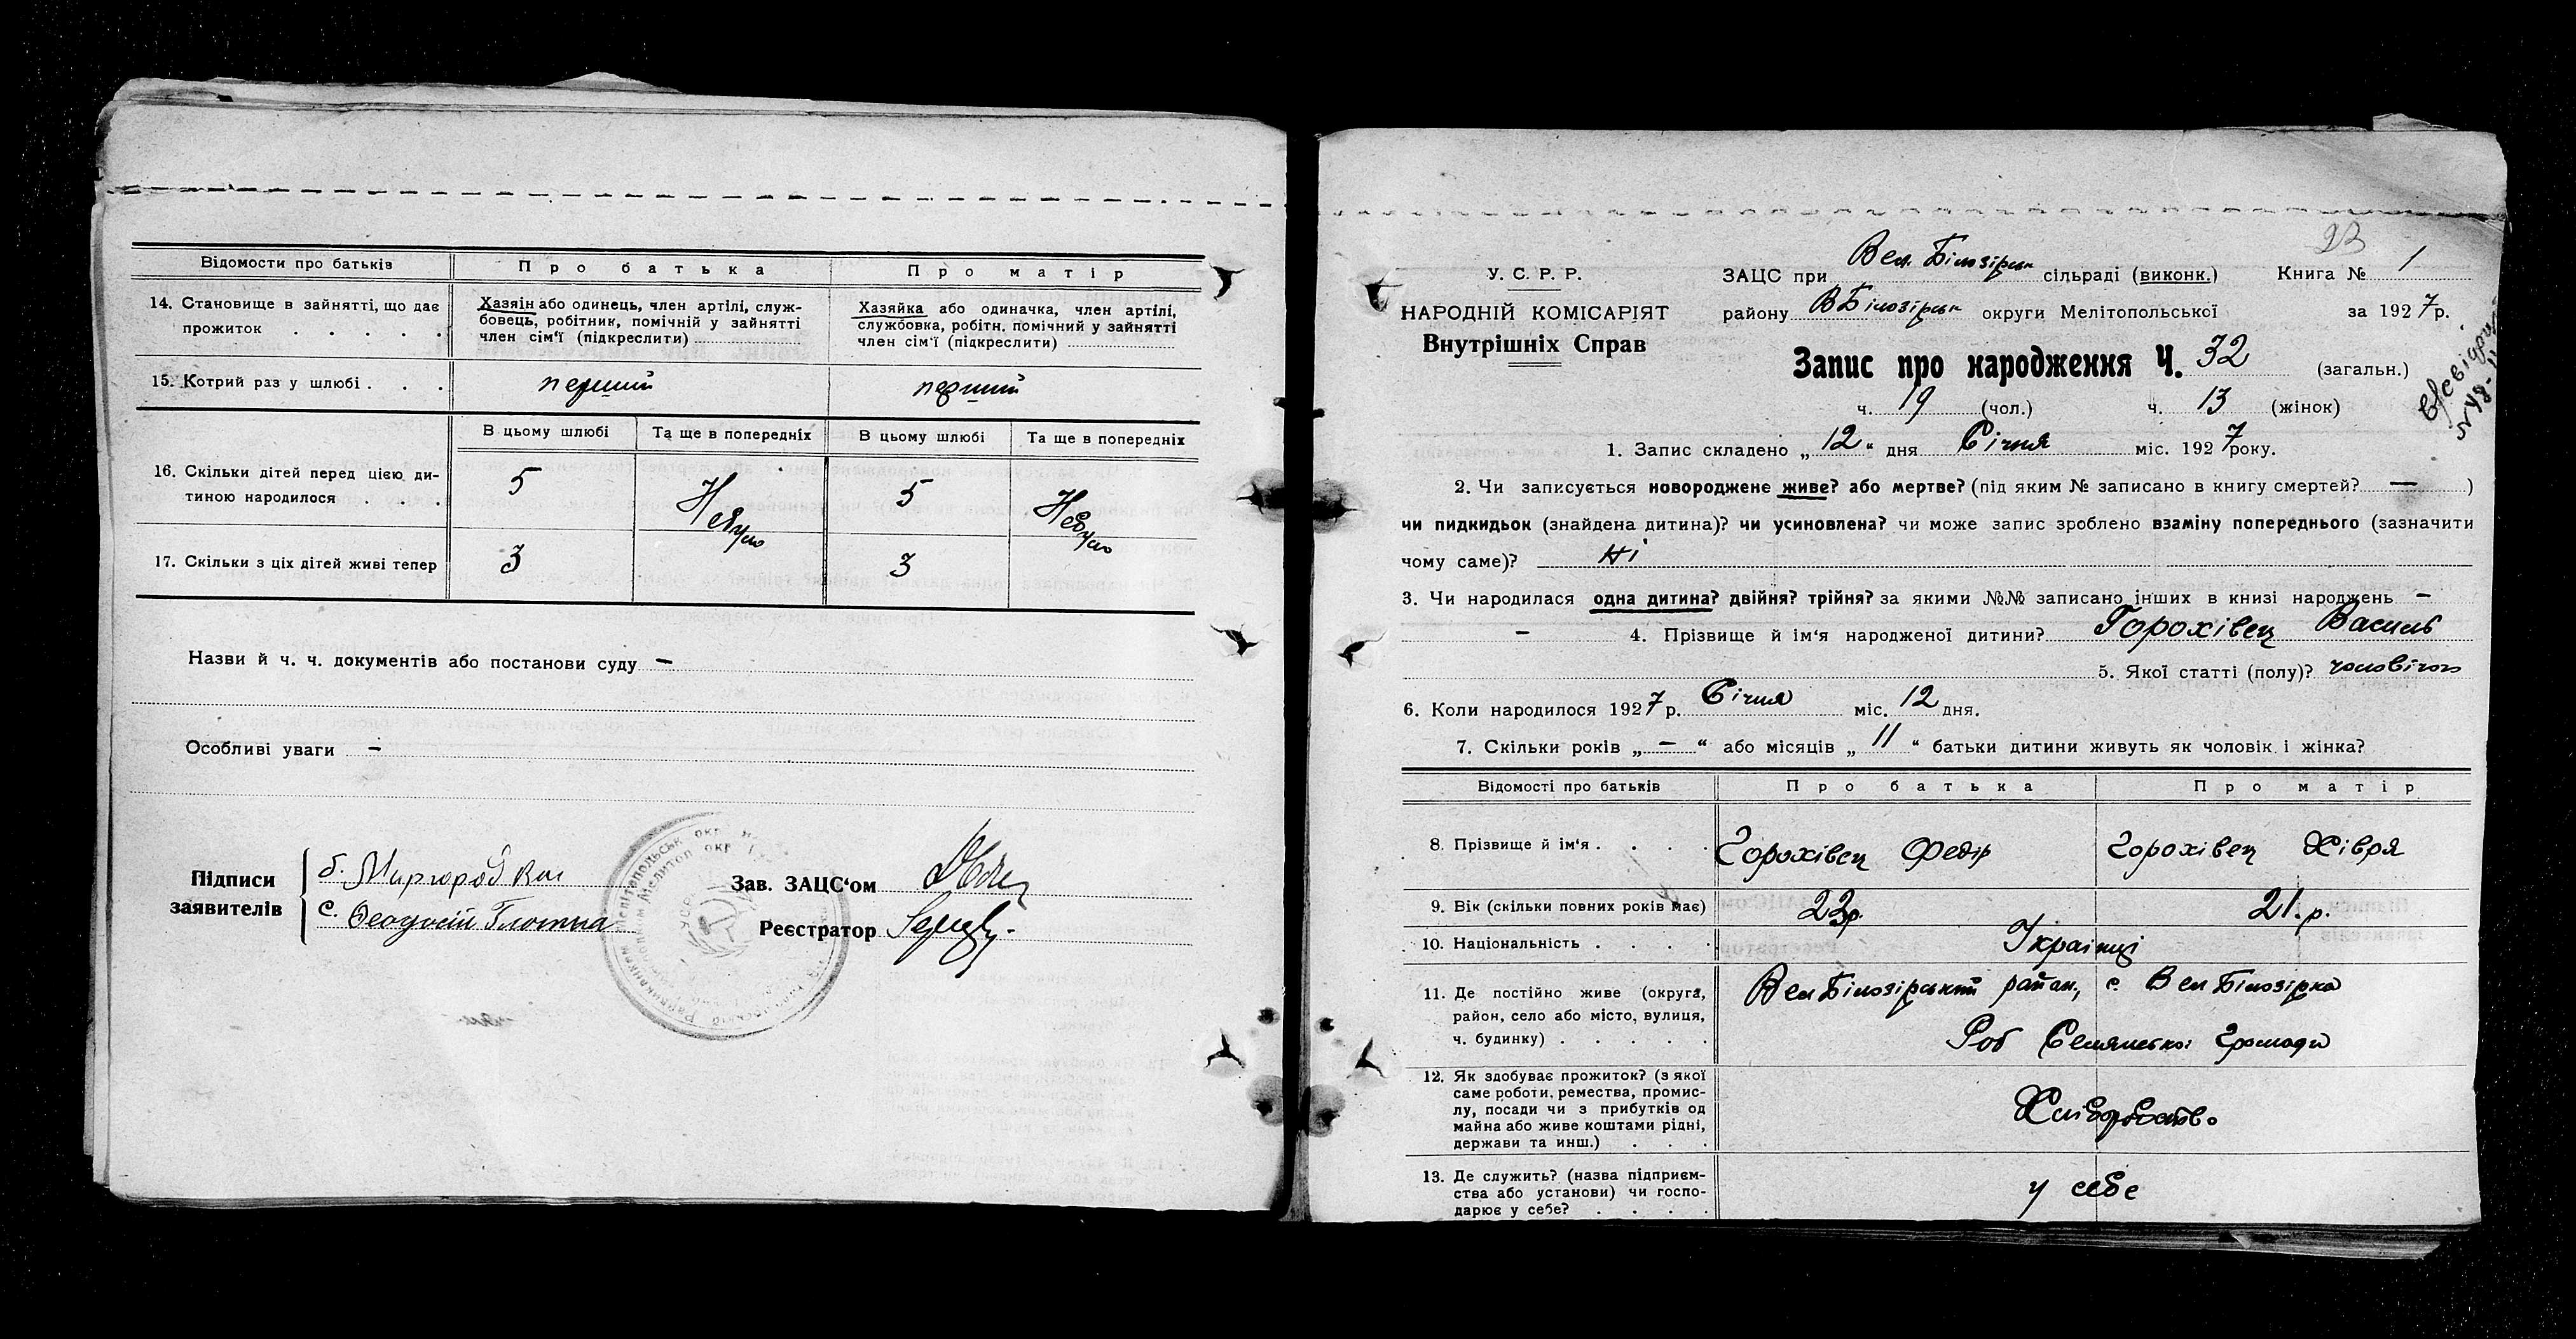 Відомости про батьків
Про батька
Про матір
14. Становище в зайнятті, що дає
прожиток . . . . .
Хазяін або одинець, член артілі, служ-
бовець, робітник, помічній у зайнятті
член сім'ї (підкреслити)
Хазяйка або одиначка, член артілі,
службовка, робітн. помічний у зайнятті
член сім'ї (підкреслити)
15. Котрий раз у шлюбі . . .
перший
перший
В цьому шлюбі
Та ще в попередніх
В цьому шлюбі
Та ще в попередніх
16. Скільки дітей перед цією ди-
тиною народилося . . .
5
Небуло
5
Небуло
17. Скільки з ціх дітей живі тепер
3
3
Назви й ч. ч. документів або постанови суду —
Особливі уваги —
Підписи
заявителів
б.
с.
Зав. ЗАЦС'ом
Реєстратор
23
У. С. Р. Р.
НАРОДНІЙ КОМІСАРІЯТ
Внутрішніх Справ
ЗАЦС при Вел. Білозірськ сільраді (виконк.) Книга № 1
району ВБілозірськ округи Мелітопольської за 1927р.
Запис про народження Ч. 32 (загальн.)
ч. 19 (чол.) ч. 13 (жінок)
1. Запис складено „12“ дня Січня міс. 1927 року.
2. Чи записується новороджене живе? або мертве? (під яким № записано в книгу смертей? — )
чи пидкидьок (знайдена дитина)? чи усиновлена? чи може запис зроблено взаміну попереднього (зазначити
чому саме)? Ні
3. Чи народилася одна дитина? двійня? трійня? за якими №№ записано інших в книзі народжень —
— 4. Прізвище й ім'я народженої дитини? Горохівец Василь
5. Якої статті (полу)? чоловічого
6. Коли народилося 1927 р. Січня міс. 12 дня.
7. Скільки років „—“ або місяців „11“ батьки дитини живуть як чоловік і жінка?
Відомості про батьків
Про батька
Про матір
8. Прізвище й ім'я . . . .
Горохівец Федір
Горохівец Хівря
9. Вік (скільки повних років має)
22р.
21.р.
10. Національність . . . . .
Українці
11. Де постійно живе (округа,
район, село або місто, вулиця,
ч. будинку) . . . . . .
Вел Білозірський район, с. Вел Білозірка
Громади
12. Як здобуває прожиток? (з якої
саме роботи, ремества, промис-
лу, посади чи з прибутків од
майна або живе коштами рідні,
держави та инш.) . . .
Хліборобство
13. Де служить? (назва підприєм-
ства або установи) чи госпо-
дарює у себе? . . . .
у себе